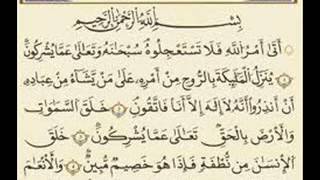 بِسْمِ اللَّهِ الرَّحْمَٰنِ الرَّحِيمِ
أَتَىٰ أَمْرُ اللَّهِ فَلَا تَسْتَعْجِلُوهُ سُبْحَانَهُ وَتَعَالَىٰ عَمَّا يُشْرِكُونَ ١
يُنَزِّلُ الْمَلَائِكَةَ بِالرُّوحِ مِنْ أَمْرِهِ عَلَىٰ مَنْ يَشَاءُ مِنْ عِبَادِهِ
أَنْ أَنْذِرُوا أَنَّهُ لَا إِلَٰهَ إِلَّا أَنَا فَاتَّقُونِ ٢ خَلَقَ السَّمَاوَاتِ
وَالْأَرْضَ بِالْحَقِّ تَعَالَىٰ عَمَّا يُشْرِكُونَ ٣ خَلَقَ
الْإِنْسَانَ مِنْ نُطْفَةٍ فَإِذَا هُوَ خَصِيمٌ مُبِينٌ ٤ وَالْأَنْعَامَ